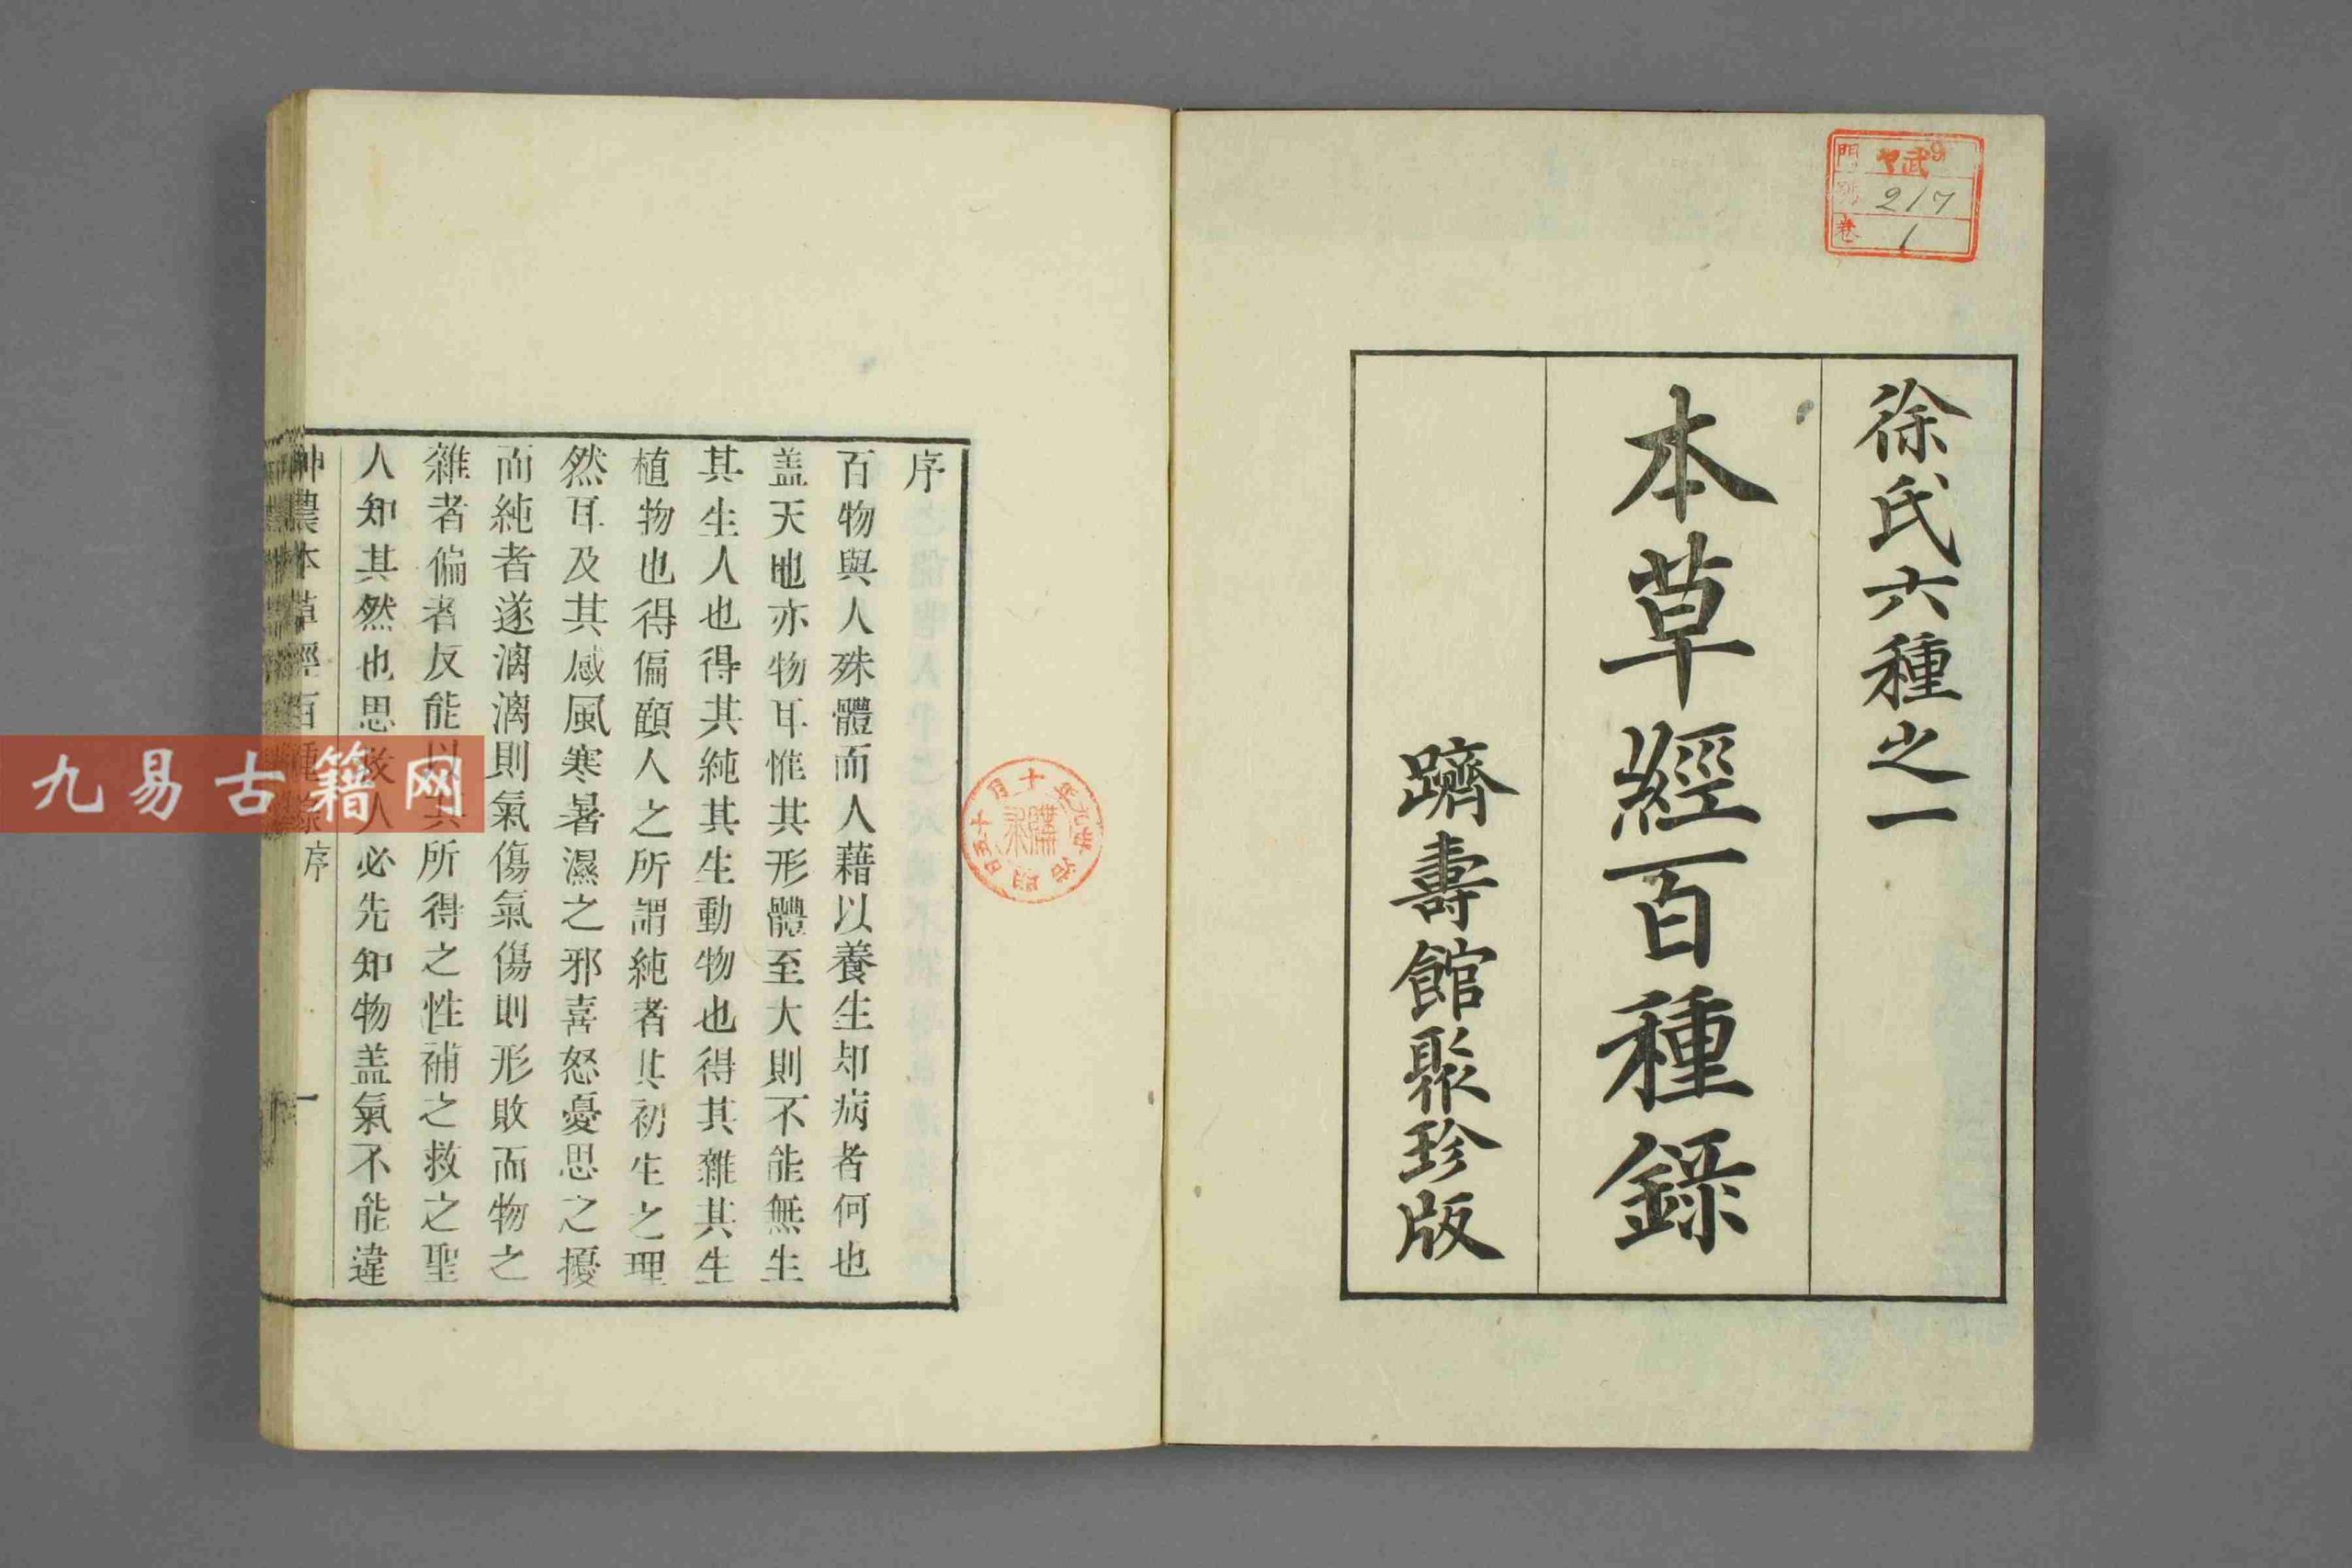 徐氏六種之一
本草經百種錄
躋壽館聚珍版
門 武 9
217
卷 1
序
百物與人殊體而人藉以養生却病者何也
盖天地亦物耳惟其形體至大則不能無生
其生人也得其純其生動物也得其雜其生
植物也得偏顧人之所謂純者其初生之理
然耳及其感風寒暑濕之邪喜怒憂思之擾
而純者遂漓漓則氣傷氣傷則形敗而物之
雜者偏者反能以其所得之性補之救之聖
人知其然也思救人必先知物盖氣不能違
神農本草經百種錄 序 一
購求 明治廿九年十月十五日
九易古籍网